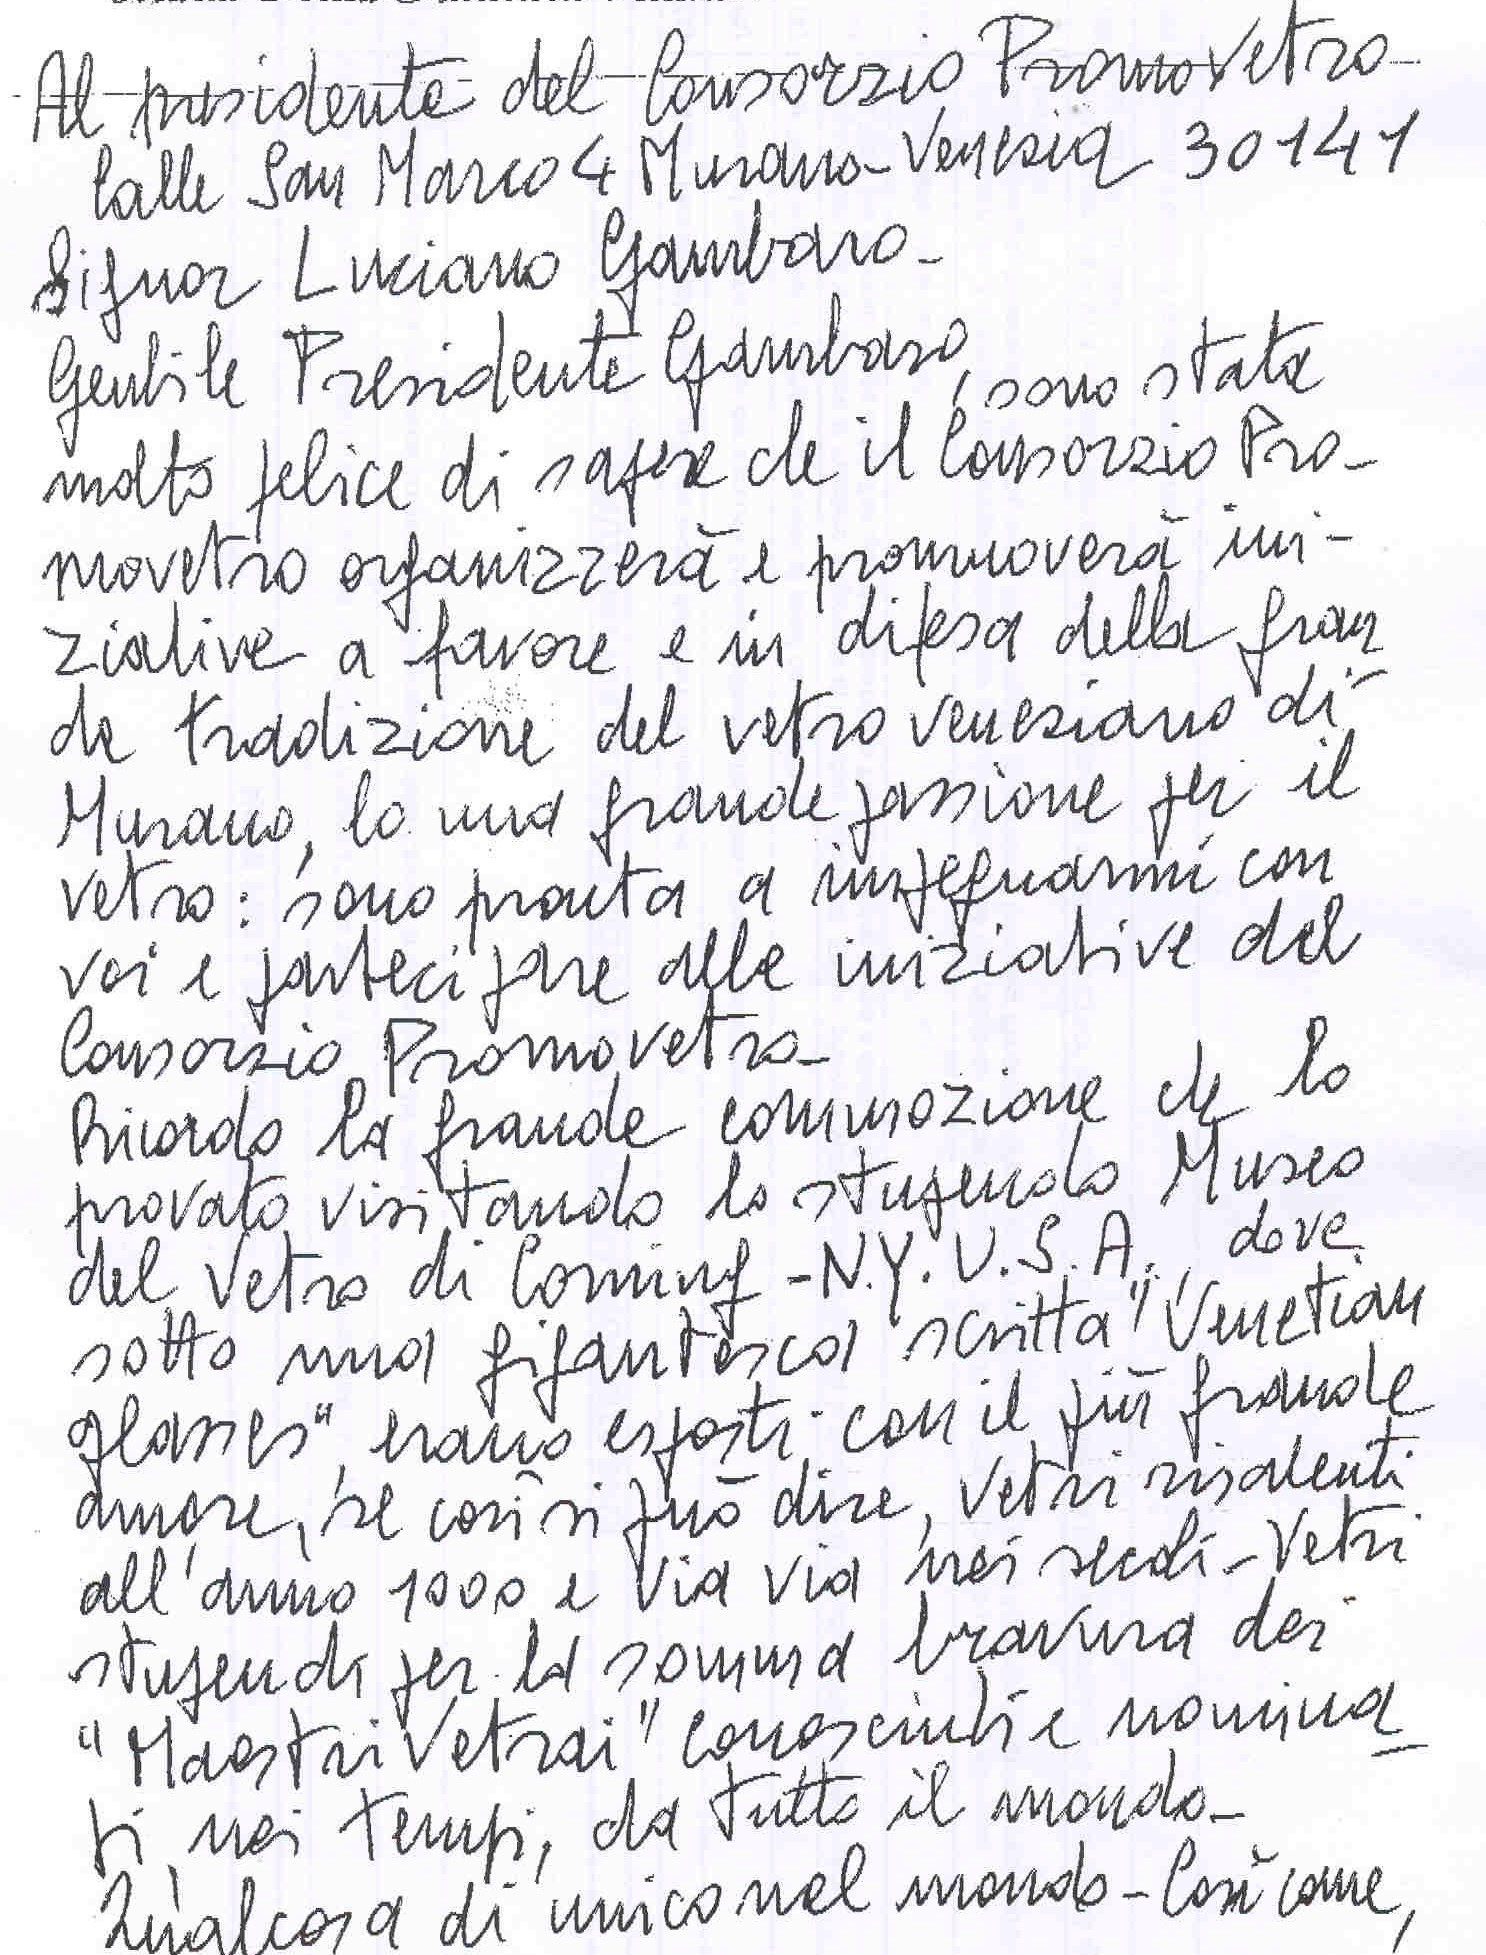 Al presidente del Consorzio Promovetro
Calle San Marco 4 Murano-Venezia 30141
Signor Luciano Gambaro-
Gentile Presidente Gambaro, sono stata
molto felice di sapere che il Consorzio Pro-
movetro organizzerà e promuoverà ini-
ziative a favore e in difesa della gran
de tradizione del vetro veneziano di
Murano, ho una grande passione per il
vetro: sono pronta a impegnarmi con
voi e partecipare alle iniziative del
Consorzio Promovetro-
Ricordo la grande commozione che ho
provato visitando lo stupendo Museo
del Vetro di Corning -N.Y. U.S.A., dove
sotto una gigantesca scritta "Venetian
glasses", erano esposti con il più grande
amore, se così si può dire, vetri risalenti
all'anno 1000 e via via nei secoli-Vetri
stupendi per la somma bravura dei
"Maestri Vetrai" conosciuti e nomina
ti nei tempi, da tutto il mondo-
Qualcosa di unico nel mondo-Così come,